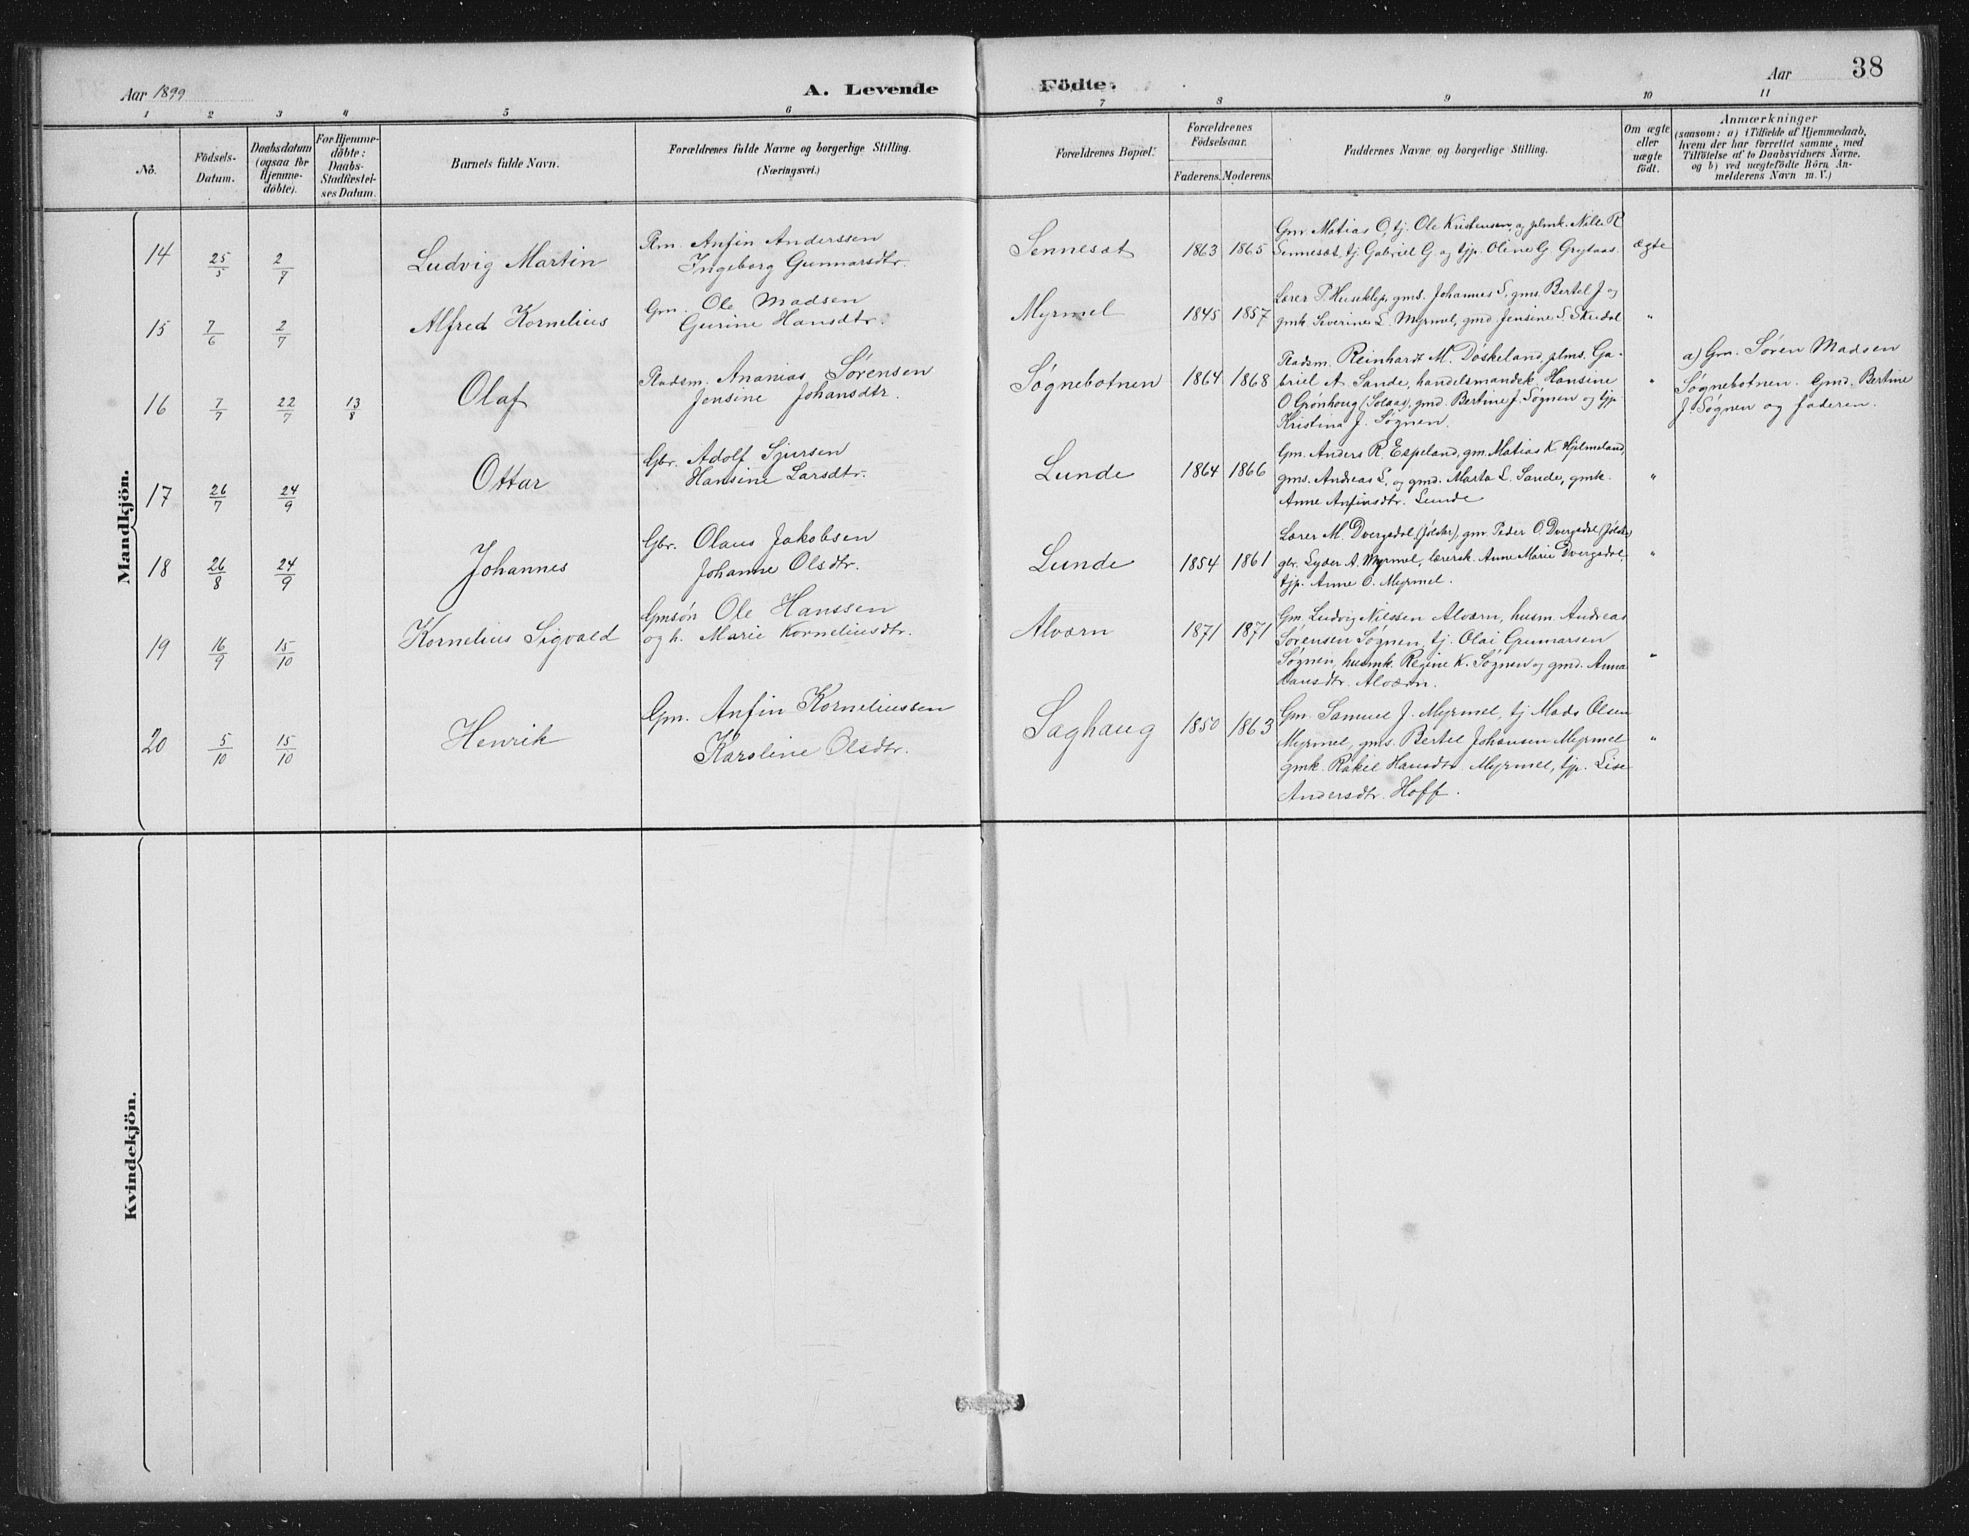 Aar 1899
A. Levende
Födte.
Aar
38
1 2 3 4 5 6 7 8 9 10 11
No.
Födsels-
Datum.
Daabsdatum
(ogsaa for
Hjemme-
döbte).
For Hjemme-
döbte:
Daabs-
Stadfæstel-
ses Datum.
Barnets fulde Navn.
Forældrenes fulde Navne og borgerlige Stilling.
(Næringsvei.)
Forældrenes Bopæl.
Forældrenes
Födselsaar.
Faderens. Moderens.
Faddernes Navne og borgerlige Stilling.
Om ægte
eller
uægte
födt.
Anmærkninger
(saasom: a) i Tilfælde af Hjemmedaab,
hvem der har forrettet samme, med
Tilföielse af to Daabsvidners Navne,
og b) ved uægtefödte Börn An-
melderens Navn m. V.)
Mandkjön.
14 25/5 2/7 Ludvig Martin
Plm. Anfin Anderssen
Ingeborg Gunnarsdtr.
Sennesæt 1863 1865
Gm Matias O, tj. Ole Kristensen og plmk. Nille R
Sennesæt, tj. Gabriel G. og tjp. Oline G. Grytaas
ægte
15 7/6 2/7 Alfred Kornelius
Gm. Ole Madsen
Gurine Hansdtr.
Myrmel 1845 1857
Lærer P. Huseklep, gms. Johannes S, gms. Bertel J og
gmk. Severine L. Myrmel, gmd. Jensine S. Skudal
"
16 7/7 22/7 13/8 Olaf
Pladsm. Ananias Sørensen
Jensine Johansdtr.
Søgnebotnen 1864 1868
Pladsm. Reinhardt M. Døskeland, plms. Ga-
briel A. Sande, handelsmandsk. Hansine
O Grønhoug (Solaas), gmd. Bertine J. Søgnen og tjp.
Kristina J. Søgnen.
"
a) Gm. Søren Madsen
Søgnebotnen. Gmd. Bertine
J. Søgnen og faderen.
17 26/7 24/9 Ottar
Gbr. Adolf Sjursen
Hansine Larsdtr.
Lunde 1864 1866
Gm. Anders R. Espeland, gm. Matias K. Hjelmeland,
gms. Andreas L, og gmd. Marta L. Sande, gmk.
Anne Anfinsdtr. Lunde
"
18 26/8 24/9 Johannes
Gbr. Olaus Jakobsen
Johanne Olsdtr.
Lunde 1854 1861
Lærer M. Dvergsdal (Jølster), gm Peder O. Dvergsdal (Jølster)
gbr. Lyder A. Myrmel, lærersk. Anne Marie Dvergsdal,
tjp. Anne O. Myrmel.
"
19 16/9 15/10 Kornelius Sigvald
Gmsøn Ole Hanssen
og h. Marie Korneliusdtr.
Alværn 1871 1871
Gm. Ludvig Nilssen Alværn, husm. Andreas
Sørensen Søgnen, tj. Olai Gunnarsen
Søgnen, husmk. Regine K. Søgnen og gmd. Anna
Hansdtr. Alværn.
"
20 5/10 15/10 Henrik
Gm. Anfin Korneliussen
Karoline Olsdtr.
Saghaug 1850 1863
Gm. Samuel J. Myrmel, tj Mads Olsen
Myrmel, gms. Bertel Johansen Myrmel
gmk. Rakel Hansdtr. Myrmel, tjp. Lise
Andersdtr. Hoff.
"
Kvindekjön.